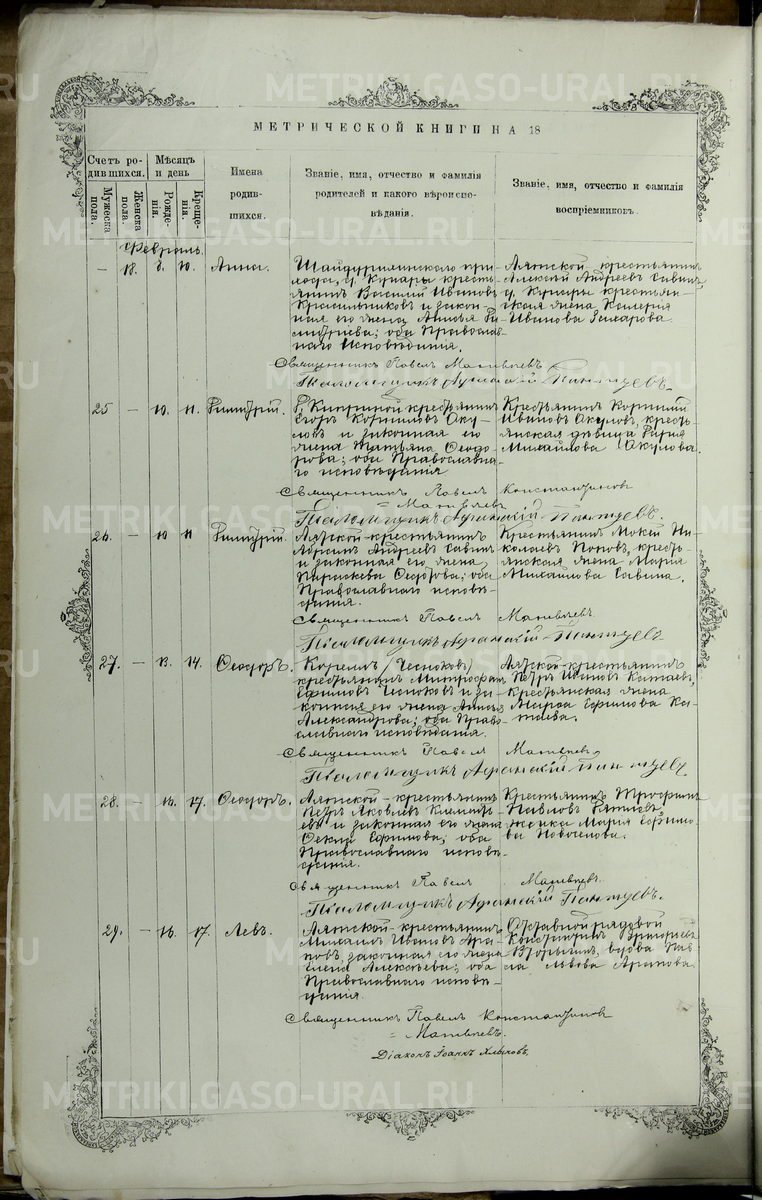 METRIKI.GASO-URAL.RU
МЕТРИЧЕСКОЙ КНИГИ НА 18
Счетъ родившихся.
Мѣсяцъ и день
Имена родившихся.
Званіе, имя, отчество и фамилія родителей и какого вѣроисповѣданія.
Званіе, имя, отчество и фамилія воспріемниковъ.
Мужеска пола.
Женска пола.
Рожденія.
Крещенія.
Февраль.
– 18. 8. 10. Анна.
Шайдурихинскаго при-
хода, д. Кунары кресть-
янинъ Василій Ивановъ
Красильниковъ и закон-
ная его жена
оба Православ-
наго Исповѣданія.
Аятской крестьянинъ
Алексій Андреевъ Савинъ,
д. Кунары крестьян-
ская жена Калерія
Иванова Захарова.
Священникъ Павелъ Матвѣевъ
Псаломщикъ
25 – 10. 11. Димитрій.
крестьянинъ
Егоръ Корниловъ Аку-
ловъ и законная его
жена Татьяна Ѳеодо-
рова; оба Православна-
го исповѣданія
Крестьянинъ Корнилій
Ивановъ Акуловъ, кресть-
янская дѣвица Марія
Михайлова Акулова.
Священникъ Павелъ Константиновъ
Матвѣевъ
Псаломщикъ
26. – 10 11 Димитрій.
Аятской крестьянинъ
Андреевъ Савинъ
и законная его жена
Параскева Ѳеодорова; оба
Православнаго исповѣ-
данія.
Крестьянинъ Мокей Ни-
колаевъ Поповъ, кресть-
янская жена Марія
Михайлова Савина.
Священникъ Павелъ Матвѣевъ.
Псаломщикъ
27. – 13. 14. Ѳеодоръ.
(Чесноковъ)
крестьянинъ Митрофанъ
Ефимовъ Чесноковъ и за-
конная его жена Анна
Александрова; оба Право-
славнаго исповѣданія.
Аятской крестьянинъ
Петръ Ивановъ Катаевъ,
крестьянская жена
Марѳа Ефимова Ка-
таева.
Священникъ Павелъ Матвѣевъ
Псаломщикъ
28. – 16. 17. Ѳеодоръ.
Аятской крестьянинъ
Петръ Яковлевъ
и законная его жена
Ѳекла Ефимова; оба
Православнаго исповѣ-
данія.
Крестьянинъ Трофимъ
Павловъ
женка Марія Ефимо-
ва Новоселова.
Священникъ Павелъ Матвѣевъ.
Псаломщикъ
29. – 16. 17. Левъ.
Аятской крестьянинъ
Михаилъ Ивановъ Ара-
повъ, законная его жена
Елена Алексѣева; оба
Православнаго исповѣ-
данія.
Отставной рядовой
Константинъ Григорьевъ
вдова Пав-
ла Львова Арапова.
Священникъ Павелъ Константиновъ
Матвѣевъ.
Діаконъ Іоаннъ